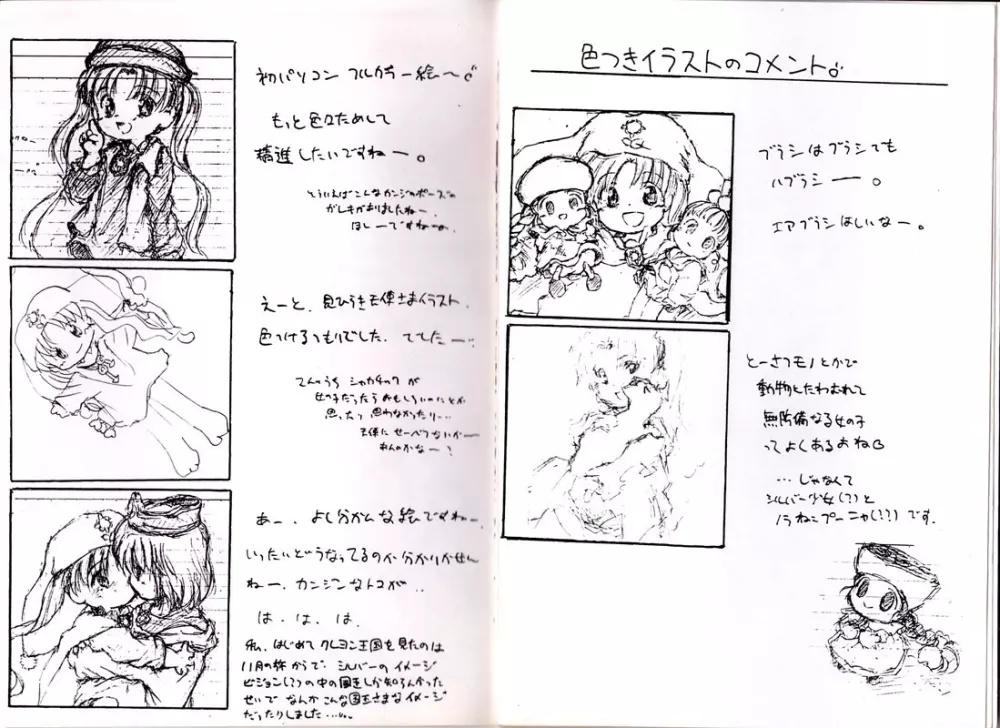 色つきイラストのコメント。
ブラシはブラシでも
ハブラシー。
エアブラシほしいなー。
とーさつモノとかで
動物とたわむれて
無防備なる女の子
ってよくあるおね
…じゃなくて
シルバー少女(?)と
ノラねこプーニャ(??)です.
初パソコン フルカラー絵〜
もっと色々ためして
精進したいですねー。
そういえばこんなカンジのポーズの
ガレキがありましたねー.
ほしーですねー.
えーと、見ひらき天使さまイラスト.
色つけるつもりでした.
てんのうち シャカチック が
女の子だったらおもしろいのにとか
思ったり 思わなかったり…
天使に せーべつないかー
あー. よく分かんな絵ですねー.
いったいどうなってるのか分かりません
ねー. カンジンなトコが..
は. は. は.
私、はじめて クレヨン王国を見たのは
11月の終わからで. シルバーのイメージ
ビジョン(?)の中の国王しか知らなかった
せいで なんか こんな国王さまなイメージ
だったりしました……